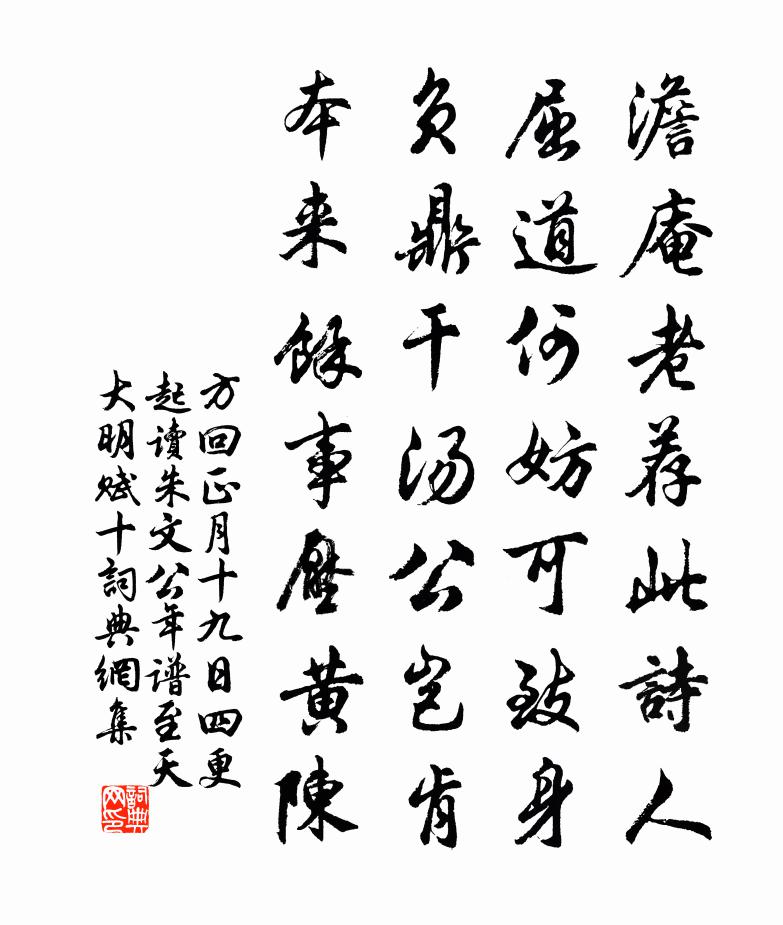 澹庵老荐此詩人
屈道何妨可致身
负鼎干汤公岂肯
本来餘事壓黄陳
方回正月十九日四更
起讀朱文公年谱至天
大明赋十詞典網集
詞典
网印